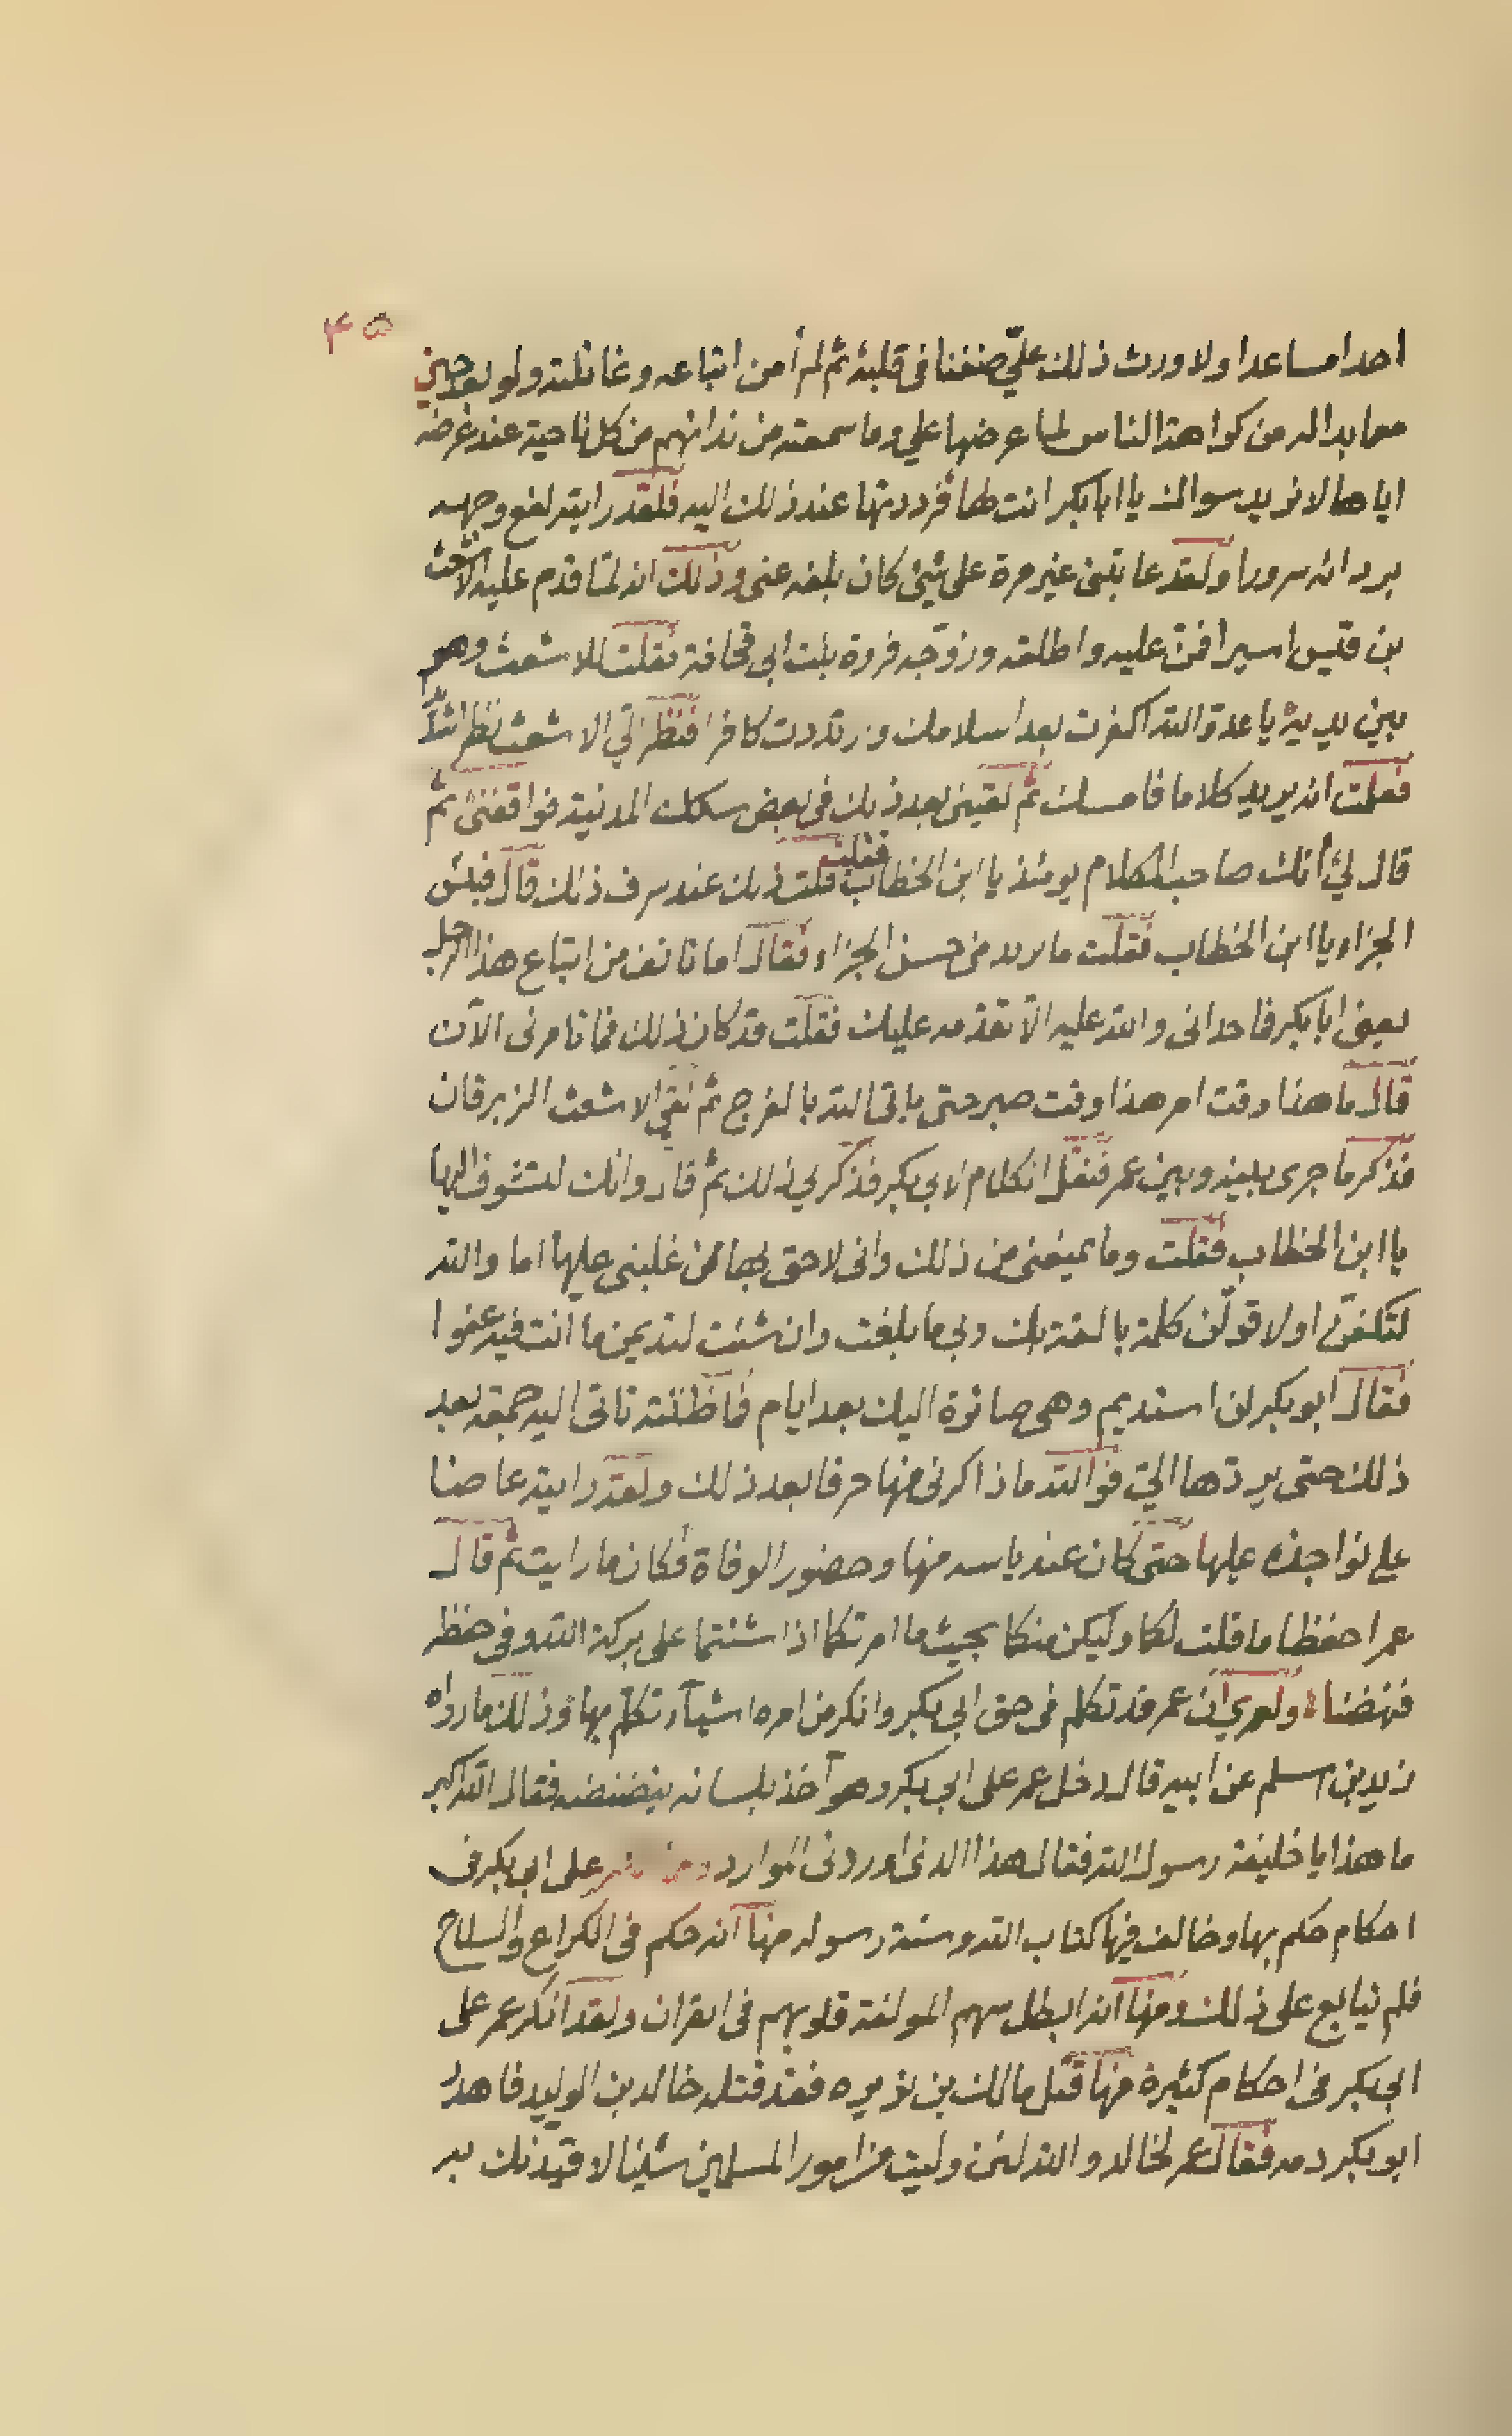 ۴۵
احدا مساعدا ولا ورث ذلك عليّ ضغنا في قلبه ثم لم أمن اتباعه وغائلته ولو بعد حين
مع ما بدا له من كراهة الناس لما عرضها علي وما سمعته من ندائهم من كل ناحية عند عرضه
اياها لا نريد سواك يا ابا بكر انت لها فرددتها عند ذلك اليه فلقد رايته لفع وجهه
بردائه سرورا ولقد عاتبني غير مرة على شيئ كان بلغه عني وذلك انه لما قدم عليه الاشعث
بن قيس اسيرا فمن عليه واطلقه وزوّجه فروة بنت ابي قحافة فقلت للاشعث وهو
بين يديه يا عدوّ الله اكفرت بعد اسلامك وارتددت كافرا فنظر اليّ الاشعث نظرا شذرا
فعلمت انه يريد كلاما فامسك ثم لقيني بعد ذلك في بعض سكك المدينة فواقفني ثم
قال لي أنك صاحب الكلام يومئذ يا ابن الخطاب فقلت قلت ذلك عند سرف ذلك قال فبئس
الجزاء يا ابن الخطاب فقلت ما تريد مني حسن الجزاء فقال اما تانف من اتباع هذا الرجل
يعني ابا بكر فما حداني والله عليه الا تقدمه عليك فقلت قد كان ذلك فما تامرني الآن
قال ما هذا وقت امر هذا وقت صبر حتى ياتي الله بالفرج ثم لقي الاشعث الزبرقان
فذكر ما جرى بينه وبين عمر فنقل الكلام لابي بكر فذكر لي ذلك ثم قال وانك لتشوف اليها
يا ابن الخطاب فقلت وما يمنعني من ذلك واني لاحق بها ممن غلبني عليها اما والله
لتكفنّ اولا قولن كلمة بالغة بك وبي ما بلغت وان شئت لتديمن ما انت فيه عفوا
فقال ابو بكر لن استديم وهي صائرة اليك بعد ايام فما ظننته تاتي اليه جمعة بعد
ذلك حتى يردها اليّ فوالله ما ذاكرني منها حرفا بعد ذلك ولقد رايته عاضا
على نواجذه عليها حتى كان عند ياسه منها وحضور الوفاة فكان ما رايت ثم قال
عمر احفظا ما قلت لكما وليكن منكما بحيث ما امرتكما اذا شئتما على بركة الله وفي حفظه
فنهضنا ولعمري ان عمر قد تكلم في حق ابي بكر وانكر من امره اشياء تكلم بها وذلك ما رواه
زيد بن اسلم عن ابيه قال دخل عمر على ابي بكر وهو آخذ بلسانه ينضنضه فقال الله اكبر
ما هذا يا خليفة رسول الله فقال هذا الذي اوردني الموارد على ابي بكر في
احكام حكم بها وخالف فيها كتاب الله وسنة رسوله منها انه حكم في الكراع والسلاح
فلم يتابع على ذلك ومنها انه ابطل سهم المولفة قلوبهم في القران ولقد انكر عمر على
ابي بكر في احكام كثيرة منها قتل مالك بن نويره فقد قتله خالد بن الوليد فاهدر
ابو بكر دمه فقال عمر لخالد والله لئن وليت من امور المسلمين شيئا لاقيدنك به